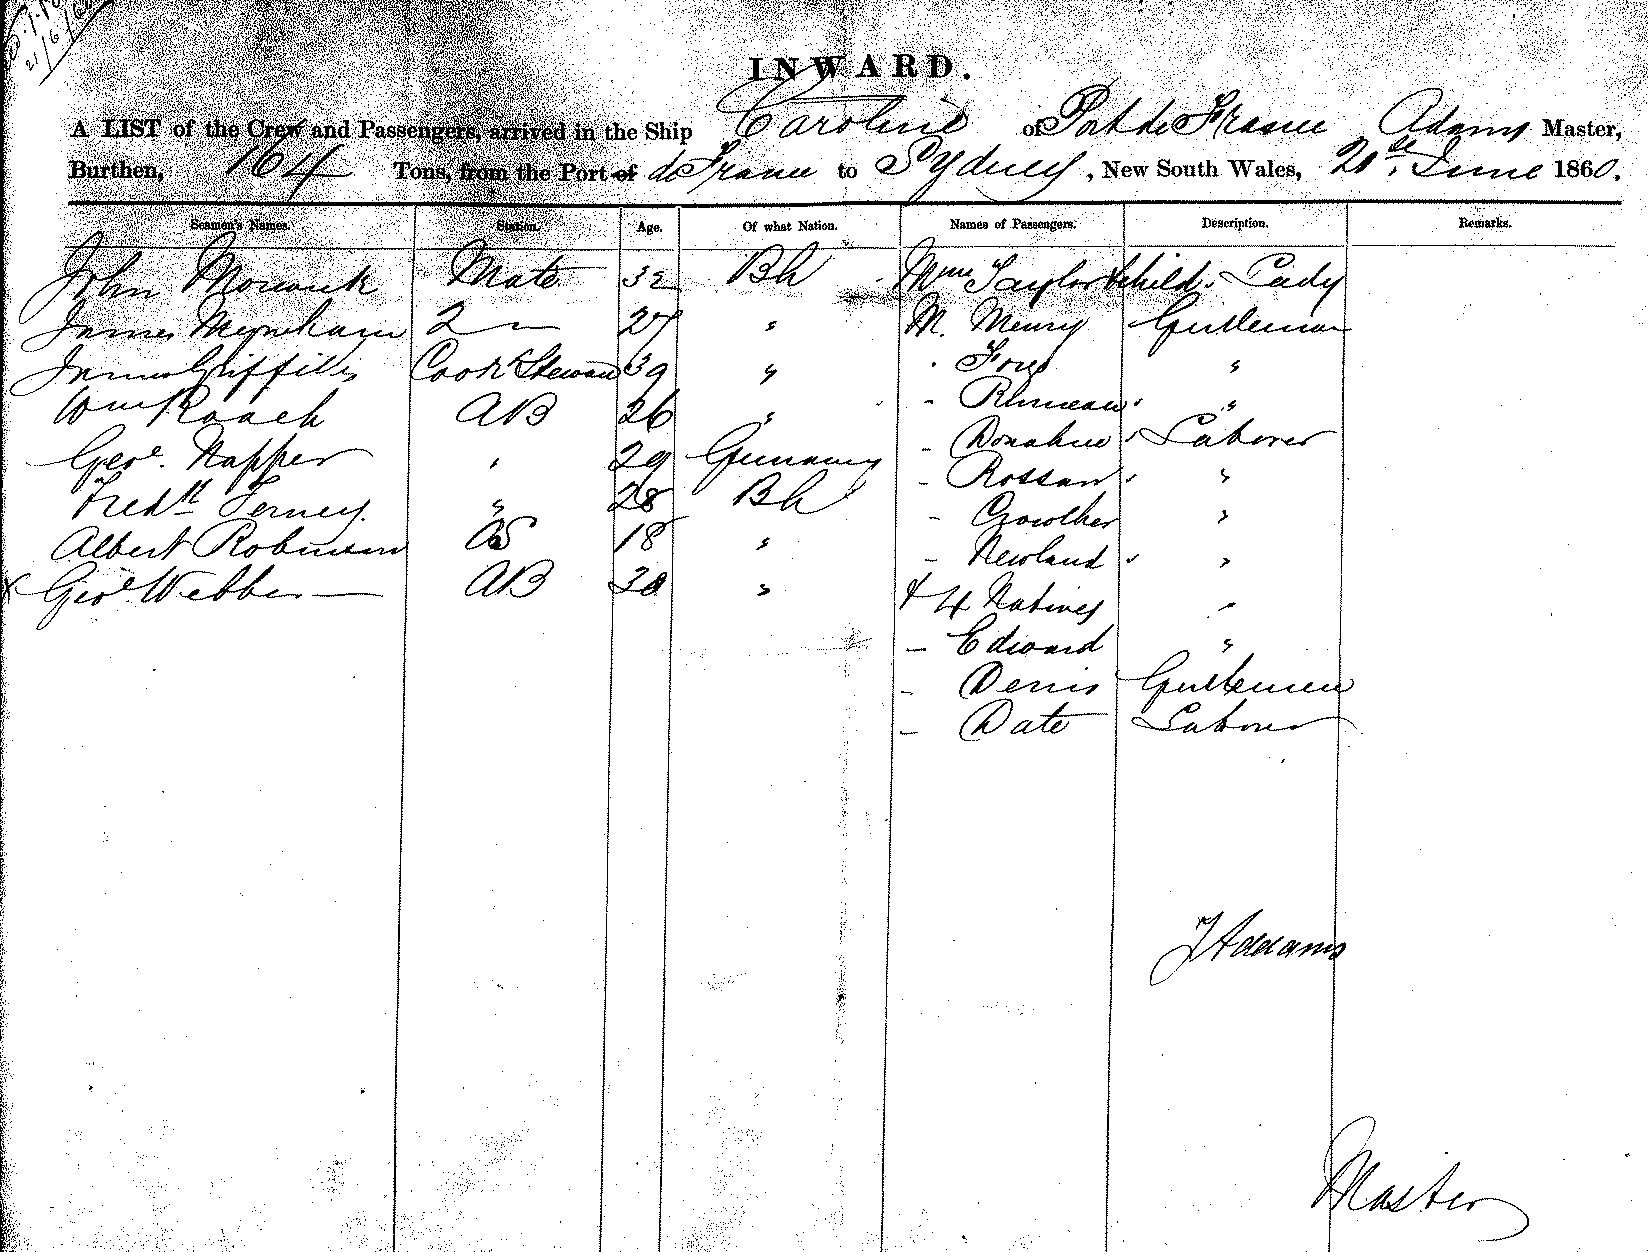 21/6/60
INWARD.
A LIST of the Crew and Passengers, arrived in the Ship Caroline of Port de France Adams Master,
Burthen, 164 Tons, from the Port of de France to Sydney, New South Wales, 21st June 1860.
Seamen's Names. Station. Age. Of what Nation. Names of Passengers. Description. Remarks.
John Mate 32 Bh Mme Taylor & child Lady
James 2 — 27 " M. Henry Gentleman
James Griffiths Cook & Steward 39 " "
Wm Roach AB 26 " - "
Geoe. Napper " 29 Germany - Donahue Laborer
Fredk Ferney. " 28 Bh - Rossan "
Albert Robinson OS 18 " - Crowther "
x Geoe Webber — AB 30 " - Newland "
+ 4 Natives "
- Edward "
- Denis Gentleman
- Date Laborer
J Addams
Master